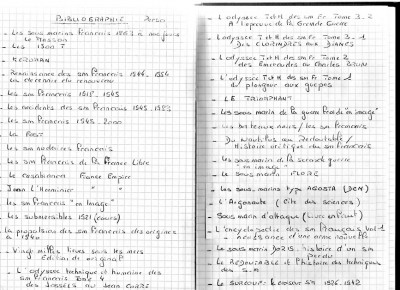 BIBLIOGRAPHIE Perso
- Les sous marins Francais 1863 à nos jours
Le Masson
- Les 1500 T
- Renaissance des sm Francais 1944-1954
- Les sm Francais 1918-1945
- Les accidents des sm Francais 1945-1983
- Les sm Francais 1945-2000
- Les sm nucleaires Francais
- Les sm Francais de la France Libre
- Le casabianca France Empire
- Jean L'Herminier " "
- Les sm Francais "en image"
- Les submersibles 1921 (cours)
- La propulsion des sm Francais des origines
à 1940
- Vingt milles lieues sous les mers
Edition de original
- L'odyssée technique et humaine des
sm Francais Tome 4
des Jassées au Jean Corre
- L'odyssee T et H des sm Fr Tome 3-2
A l'epreuve de la Grande Guerre
- L'odyssee T et H des sm Fr Tome 3-1
Des CLORINDES AUX DIANES
- L'odyssee T et H des sm Fr Tome 2
des Emeraudes au Charles BRUN
- L'odyssée T et H des sm Fr Tome 1
du plongeur aux guepes
- LE TRIOMPHANT
- Les sous marins de la guerre froide "en image"
- les bateaux noirs / les sm Francais
- Du Nautilus au Redoutable /
Histoire critique du sm Francais
- Les sous marins de la seconde guerre
"en image"
- Le sous marin FLORE
- Les sous marins type AGOSTA (DCN)
- L'Argonaute (Cite des sciences)
- Sous marin d'attaque (Livre enfant)
- L'encyclopedie des sm Français Vol 1
naissance d'une arme nouvelle
- Le sous marin DORIS : histoire d'un sm
perdu
- Le REDOUTABLE et l'histoire des techniques
des S.M
- Le SURCOUF : le croiseur SM 1926-1942